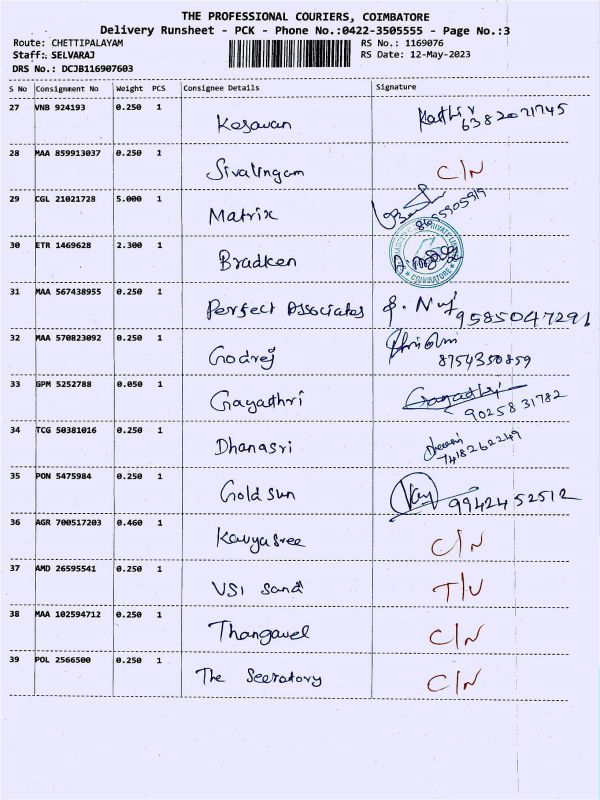 THE PROFESSIONAL COURIERS, COIMBATORE
Delivery Runsheet - PCK - Phone No.:0422-3505555 - Page No.:3
Route: CHETTIPALAYAM RS No.: 1169076
Staff: SELVARAJ RS Date: 12-May-2023
DRS No.: DCJB116907603
S No Consignment No Weight PCS Consignee Details Signature
27 VNB 924193 0.250 1 Kesavan
28 MAA 859913037 0.250 1 Sivalingam C/N
29 CGL 21021728 5.000 1 Matrix
30 ETR 1469628 2.300 1 Bradken COIMBATORE
31 MAA 567438955 0.250 1 Perfect Associates 9585047291
32 MAA 570823092 0.250 1 Godrej 8754350859
33 GPM 5252788 0.050 1 Gayathri Gayathri 9025831782
34 TCG 50381016 0.250 1 Dhanasri 7418262249
35 PON 5475984 0.250 1 Gold sun 9942452512
36 AGR 700517203 0.460 1 Kavyasree C/N
37 AMD 26595541 0.250 1 VSI Sand T/U
38 MAA 102594712 0.250 1 Thangavel C/N
39 POL 2566500 0.250 1 The Secratory C/N